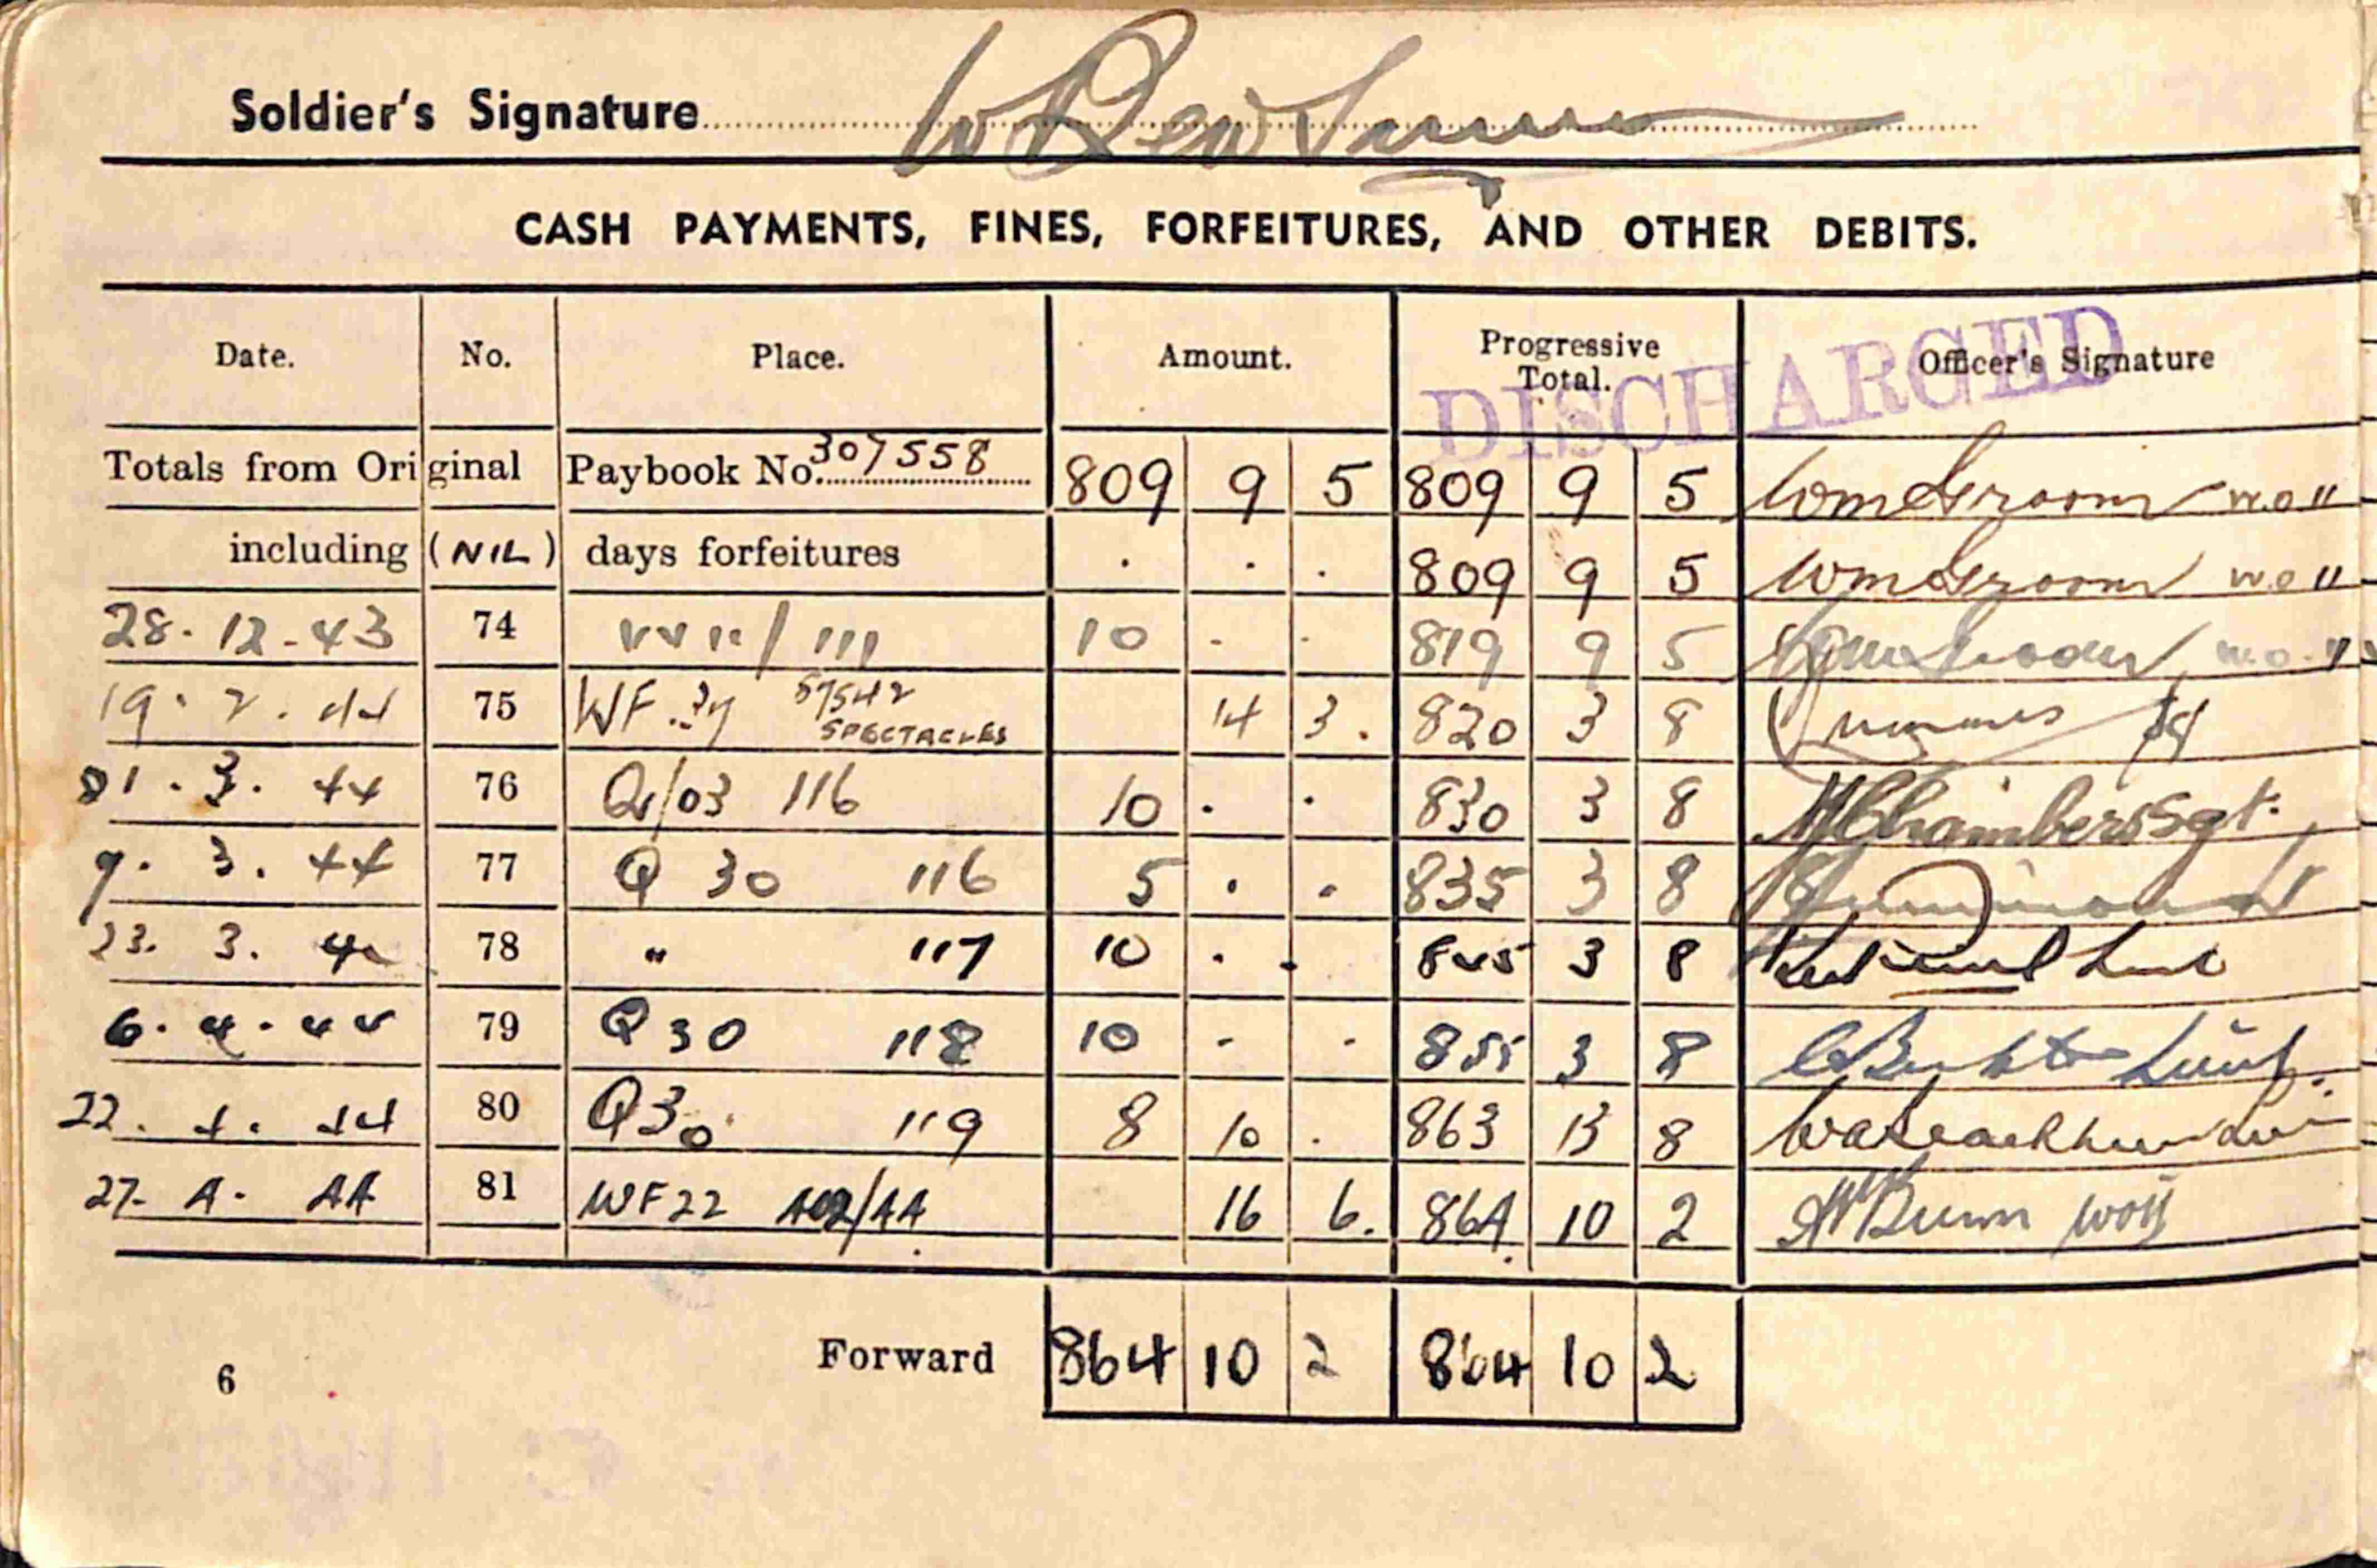 Soldier's Signature
CASH PAYMENTS, FINES, FORFEITURES, AND OTHER DEBITS.
Date. No. Place. Amount. Progressive Total. Officer's Signature
DISCHARGED
Totals from Original Paybook No. 307558 809 9 5 809 9 5 W.O II
including (NIL) days forfeitures . . . 809 9 5 W.O II
28.12.43 74 111 10 - . 819 9 5 W.O. II
19.2.44 75 WF 57542 SPECTACLES 14 3. 820 3 8
1.3.44 76 Q/03 116 10 . . 830 3 8 Chambers Sgt.
9.3.44 77 Q 30 116 5 . . 835 3 8
23.3.44 78 " 117 10 . . 845 3 8
6.4.44 79 Q 30 118 10 - . 855 3 8 Lieut.
22.4.44 80 Q30 119 8 10 . 863 13 8
27.4.44 81 WF22 402/44 16 6. 864 10 2 Bunn WOII
Forward 864 10 2 864 10 2
6